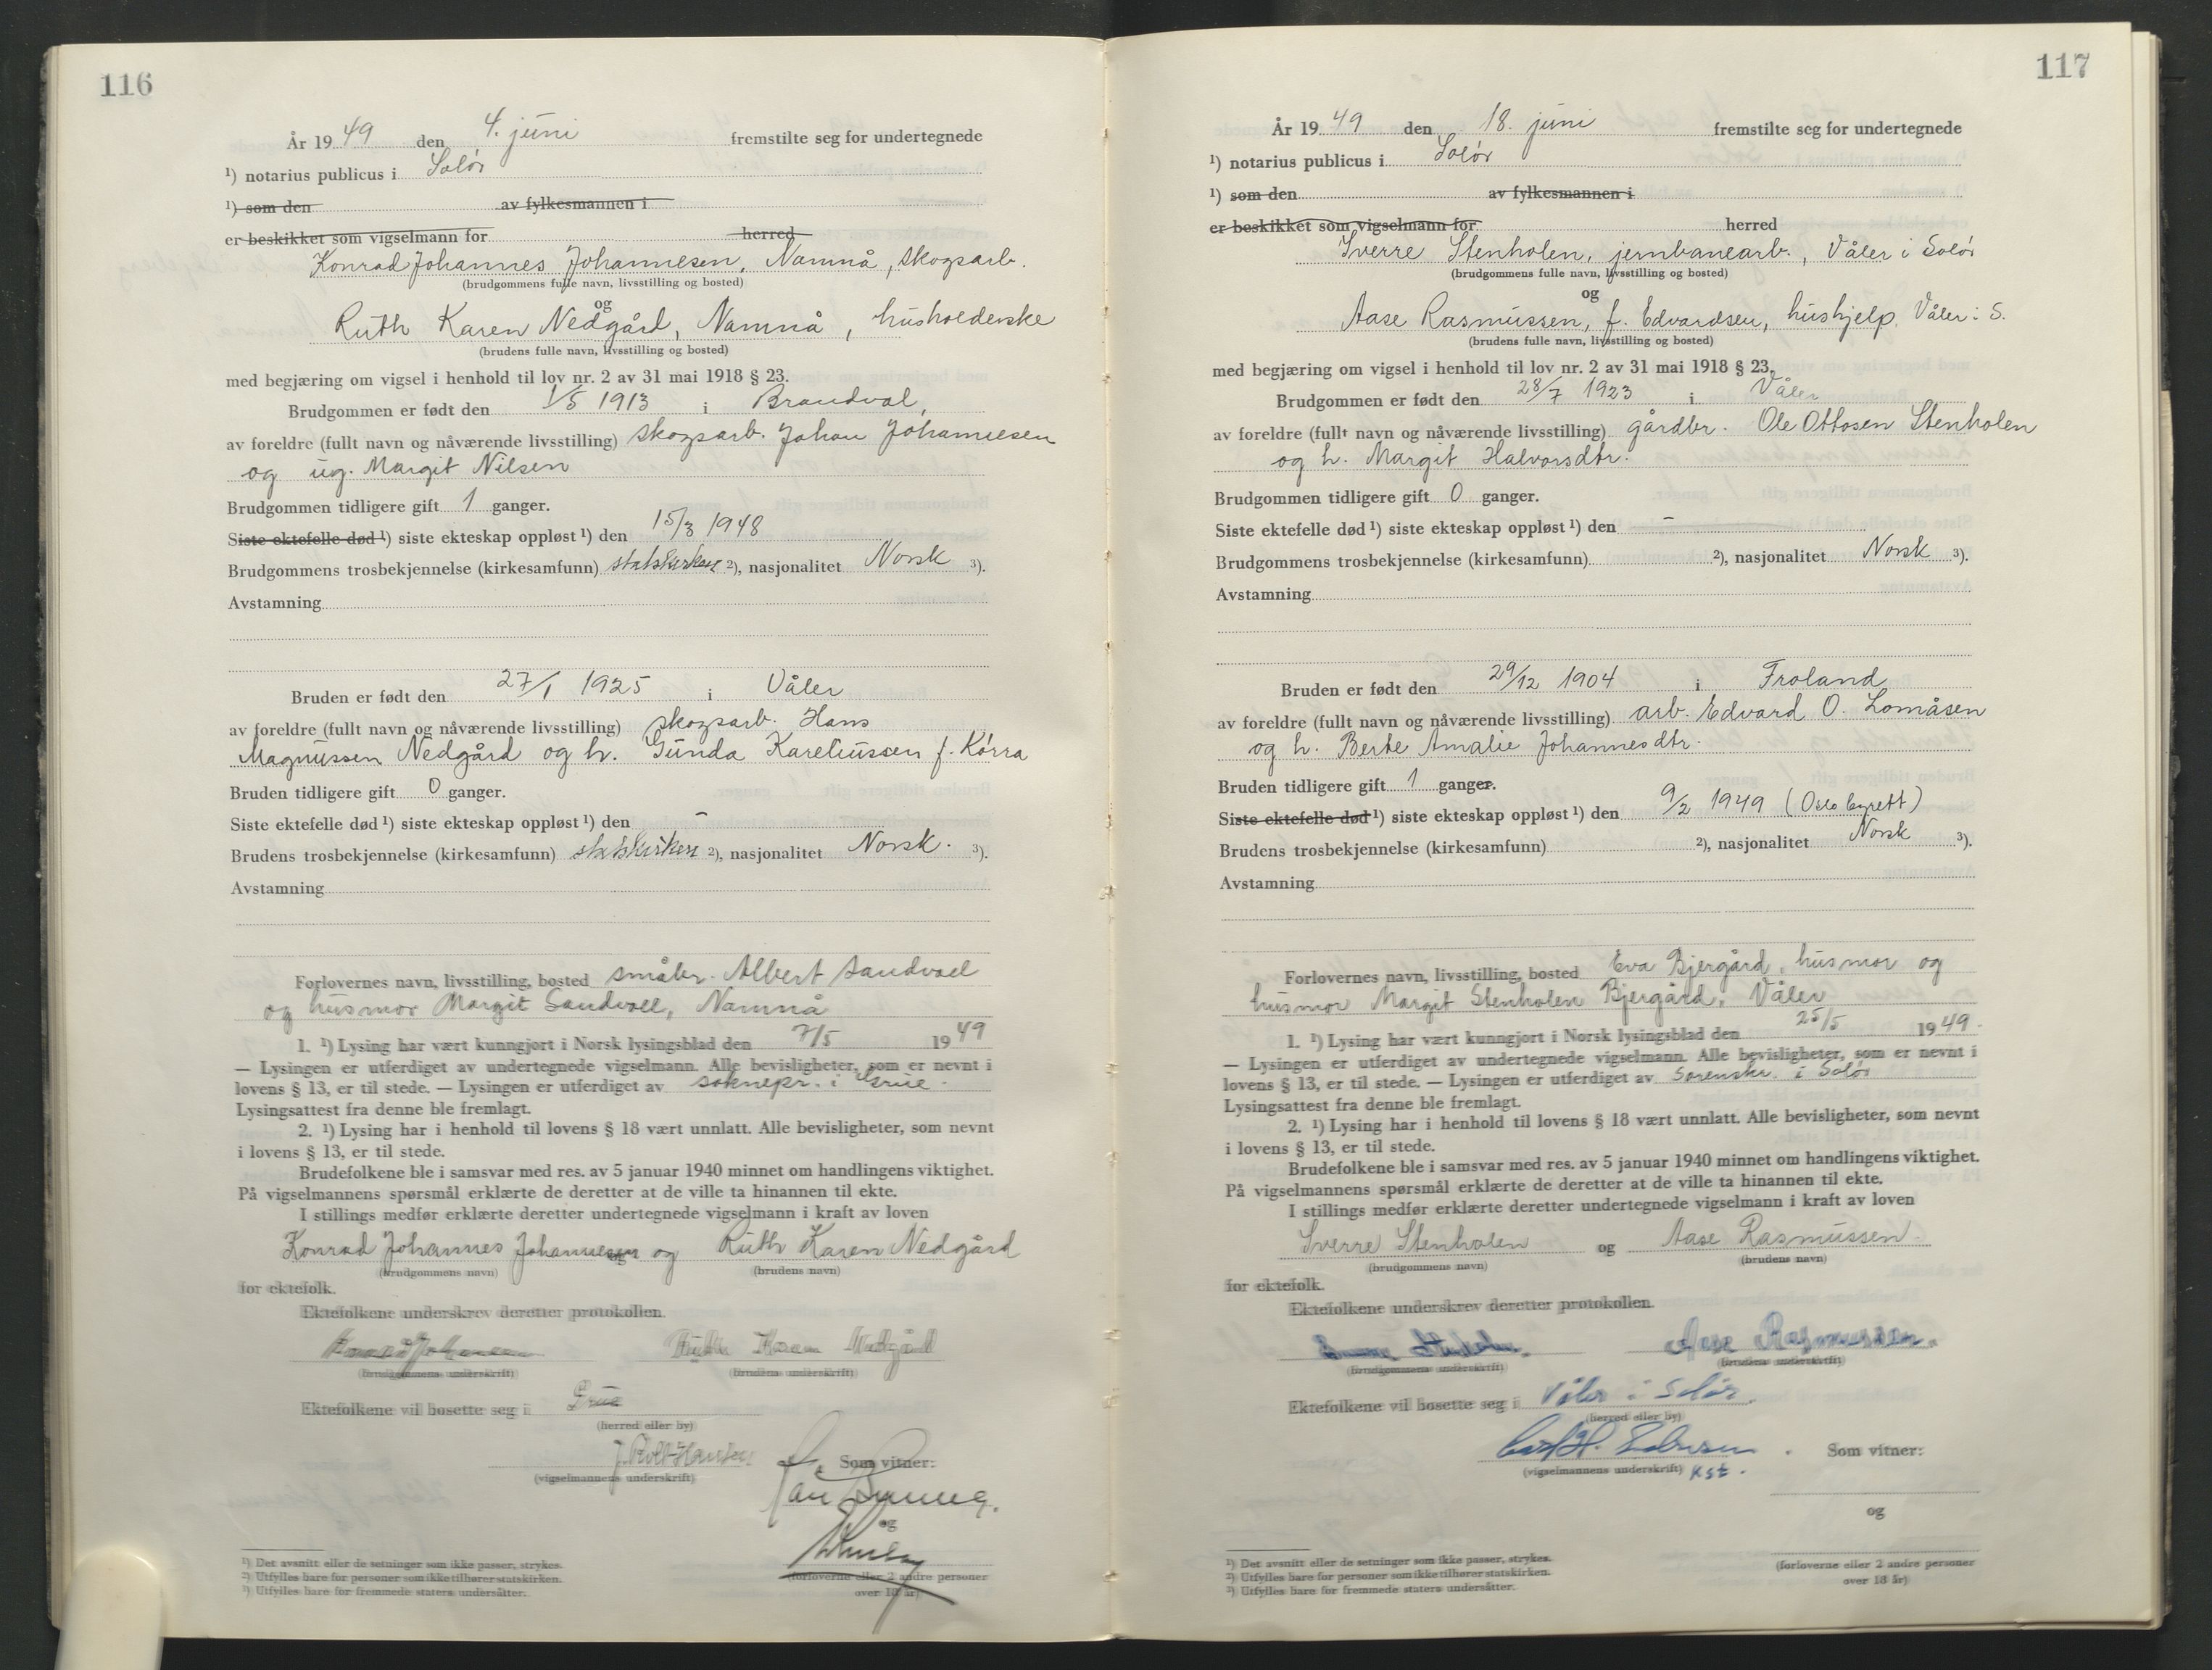 116
År 19 49 den 4. juni fremstilte seg for undertegnede
¹) notarius publicus i Solør
¹) som den av fylkesmannen i
er beskikket som vigselmann for herred
Konrad Johannes Johannesen, Namnå, skogsarb.
(brudgommens fulle navn, livsstilling og bosted)
og
Ruth Karen Nedgård, Namnå, husholderske
(brudens fulle navn, livsstilling og bosted)
med begjæring om vigsel i henhold til lov nr. 2 av 31 mai 1918 § 23.
Brudgommen er født den 1/5 1913 i Brandval,
av foreldre (fullt navn og nåværende livsstilling) skogsarb. Johan Johannesen
og ug. Margit Nilsen
Brudgommen tidligere gift 1 ganger.
Siste ektefelle død ¹) siste ekteskap oppløst ¹) den 15/3 1948
Brudgommens trosbekjennelse (kirkesamfunn) statskirken ²), nasjonalitet Norsk ³).
Avstamning
Bruden er født den 27/1 1925 i Våler
av foreldre (fullt navn og nåværende livsstilling) skogsarb. Hans
Magnussen Nedgård og h. Gunda Kareliussen f. Kørra
Bruden tidligere gift 0 ganger.
Siste ektefelle død ¹) siste ekteskap oppløst ¹) den –
Brudens trosbekjennelse (kirkesamfunn) statskirken ²), nasjonalitet Norsk. ³).
Avstamning
Forlovernes navn, livsstilling, bosted småbr. Albert Sandvoel
og husmor Margit Sandvoll, Namnå
1. ¹) Lysing har vært kunngjort i Norsk lysingsblad den 7/5 19 49
— Lysingen er utferdiget av undertegnede vigselmann. Alle bevisligheter, som er nevnt i
lovens § 13, er til stede. — Lysingen er utferdiget av soknepr. i Grue.
Lysingsattest fra denne ble fremlagt.
2. ¹) Lysing har i henhold til lovens § 18 vært unnlatt. Alle bevisligheter, som nevnt
i lovens § 13, er til stede.
Brudefolkene ble i samsvar med res. av 5 januar 1940 minnet om handlingens viktighet.
På vigselmannens spørsmål erklærte de deretter at de ville ta hinannen til ekte.
I stillings medfør erklærte deretter undertegnede vigselmann i kraft av loven
Konrad Johannes Johannesen og Ruth Karen Nedgård
(brudgommens navn) (brudens navn)
for ektefolk.
Ektefolkene underskrev deretter protokollen.
Konrad Johannesen Ruth Karen Nedgård
(brudgommens underskrift) (brudens underskrift)
Ektefolkene vil bosette seg i Grue
(herred eller by)
(vigselmannens underskrift)
Som vitner:
og
(forloverne eller 2 andre personer
over 18 år)
¹) Det avsnitt eller de setninger som ikke passer, strykes.
²) Utfylles bare for personer som ikke tilhører statskirken.
³) Utfylles bare for fremmede staters undersåtter.
117
År 19 49 den 18. juni fremstilte seg for undertegnede
¹) notarius publicus i Solør
¹) som den av fylkesmannen i
er beskikket som vigselmann for herred
Sverre Stenholen, jernbanearb., Våler i Solør
(brudgommens fulle navn, livsstilling og bosted)
og
Aase Rasmussen, f. Edvardsen, hushjelp, Våler i S.
(brudens fulle navn, livsstilling og bosted)
med begjæring om vigsel i henhold til lov nr. 2 av 31 mai 1918 § 23.
Brudgommen er født den 28/7 1923 i Våler
av foreldre (fullt navn og nåværende livsstilling) gårdbr. Ole Ottosen Stenholen
og h. Margit Halvorsdtr.
Brudgommen tidligere gift 0 ganger.
Siste ektefelle død ¹) siste ekteskap oppløst ¹) den –
Brudgommens trosbekjennelse (kirkesamfunn) ²), nasjonalitet Norsk ³).
Avstamning
Bruden er født den 29/12 1904 i Froland
av foreldre (fullt navn og nåværende livsstilling) arb. Edvard O. Lomåsen
og h. Berte Amalie Johannesdtr.
Bruden tidligere gift 1 ganger.
Siste ektefelle død ¹) siste ekteskap oppløst ¹) den 9/2 1949 (Oslo byrett)
Brudens trosbekjennelse (kirkesamfunn) ²), nasjonalitet Norsk ³).
Avstamning
Forlovernes navn, livsstilling, bosted Eva Bjergård, husmor og
husmor Margit Stenholen Bjergård, Våler
1. ¹) Lysing har vært kunngjort i Norsk lysingsblad den 25/5 19 49.
— Lysingen er utferdiget av undertegnede vigselmann. Alle bevisligheter, som er nevnt i
lovens § 13, er til stede. — Lysingen er utferdiget av Sorenskr. i Solør
Lysingsattest fra denne ble fremlagt.
2. ¹) Lysing har i henhold til lovens § 18 vært unnlatt. Alle bevisligheter, som nevnt
i lovens § 13, er til stede.
Brudefolkene ble i samsvar med res. av 5 januar 1940 minnet om handlingens viktighet.
På vigselmannens spørsmål erklærte de deretter at de ville ta hinannen til ekte.
I stillings medfør erklærte deretter undertegnede vigselmann i kraft av loven
Sverre Stenholen og Aase Rasmussen
(brudgommens navn) (brudens navn)
for ektefolk.
Ektefolkene underskrev deretter protokollen.
Sverre Stenholen. Aase Rasmussen.
(brudgommens underskrift) (brudens underskrift)
Ektefolkene vil bosette seg i Våler i Solør.
(herred eller by)
(vigselmannens underskrift) kst.
Som vitner:
og
(forloverne eller 2 andre personer
over 18 år)
¹) Det avsnitt eller de setninger som ikke passer, strykes.
²) Utfylles bare for personer som ikke tilhører statskirken.
³) Utfylles bare for fremmede staters undersåtter.